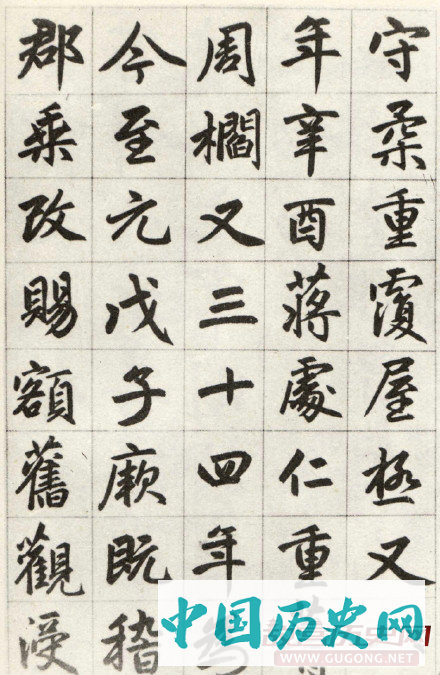 守柔重覆屋極又
年辛酉蔣處仁重
周櫩又三十四年
今至元戊子厥既稽
郡乘改賜額舊觀浸
中国历史网
WWW.GUGONG.NET